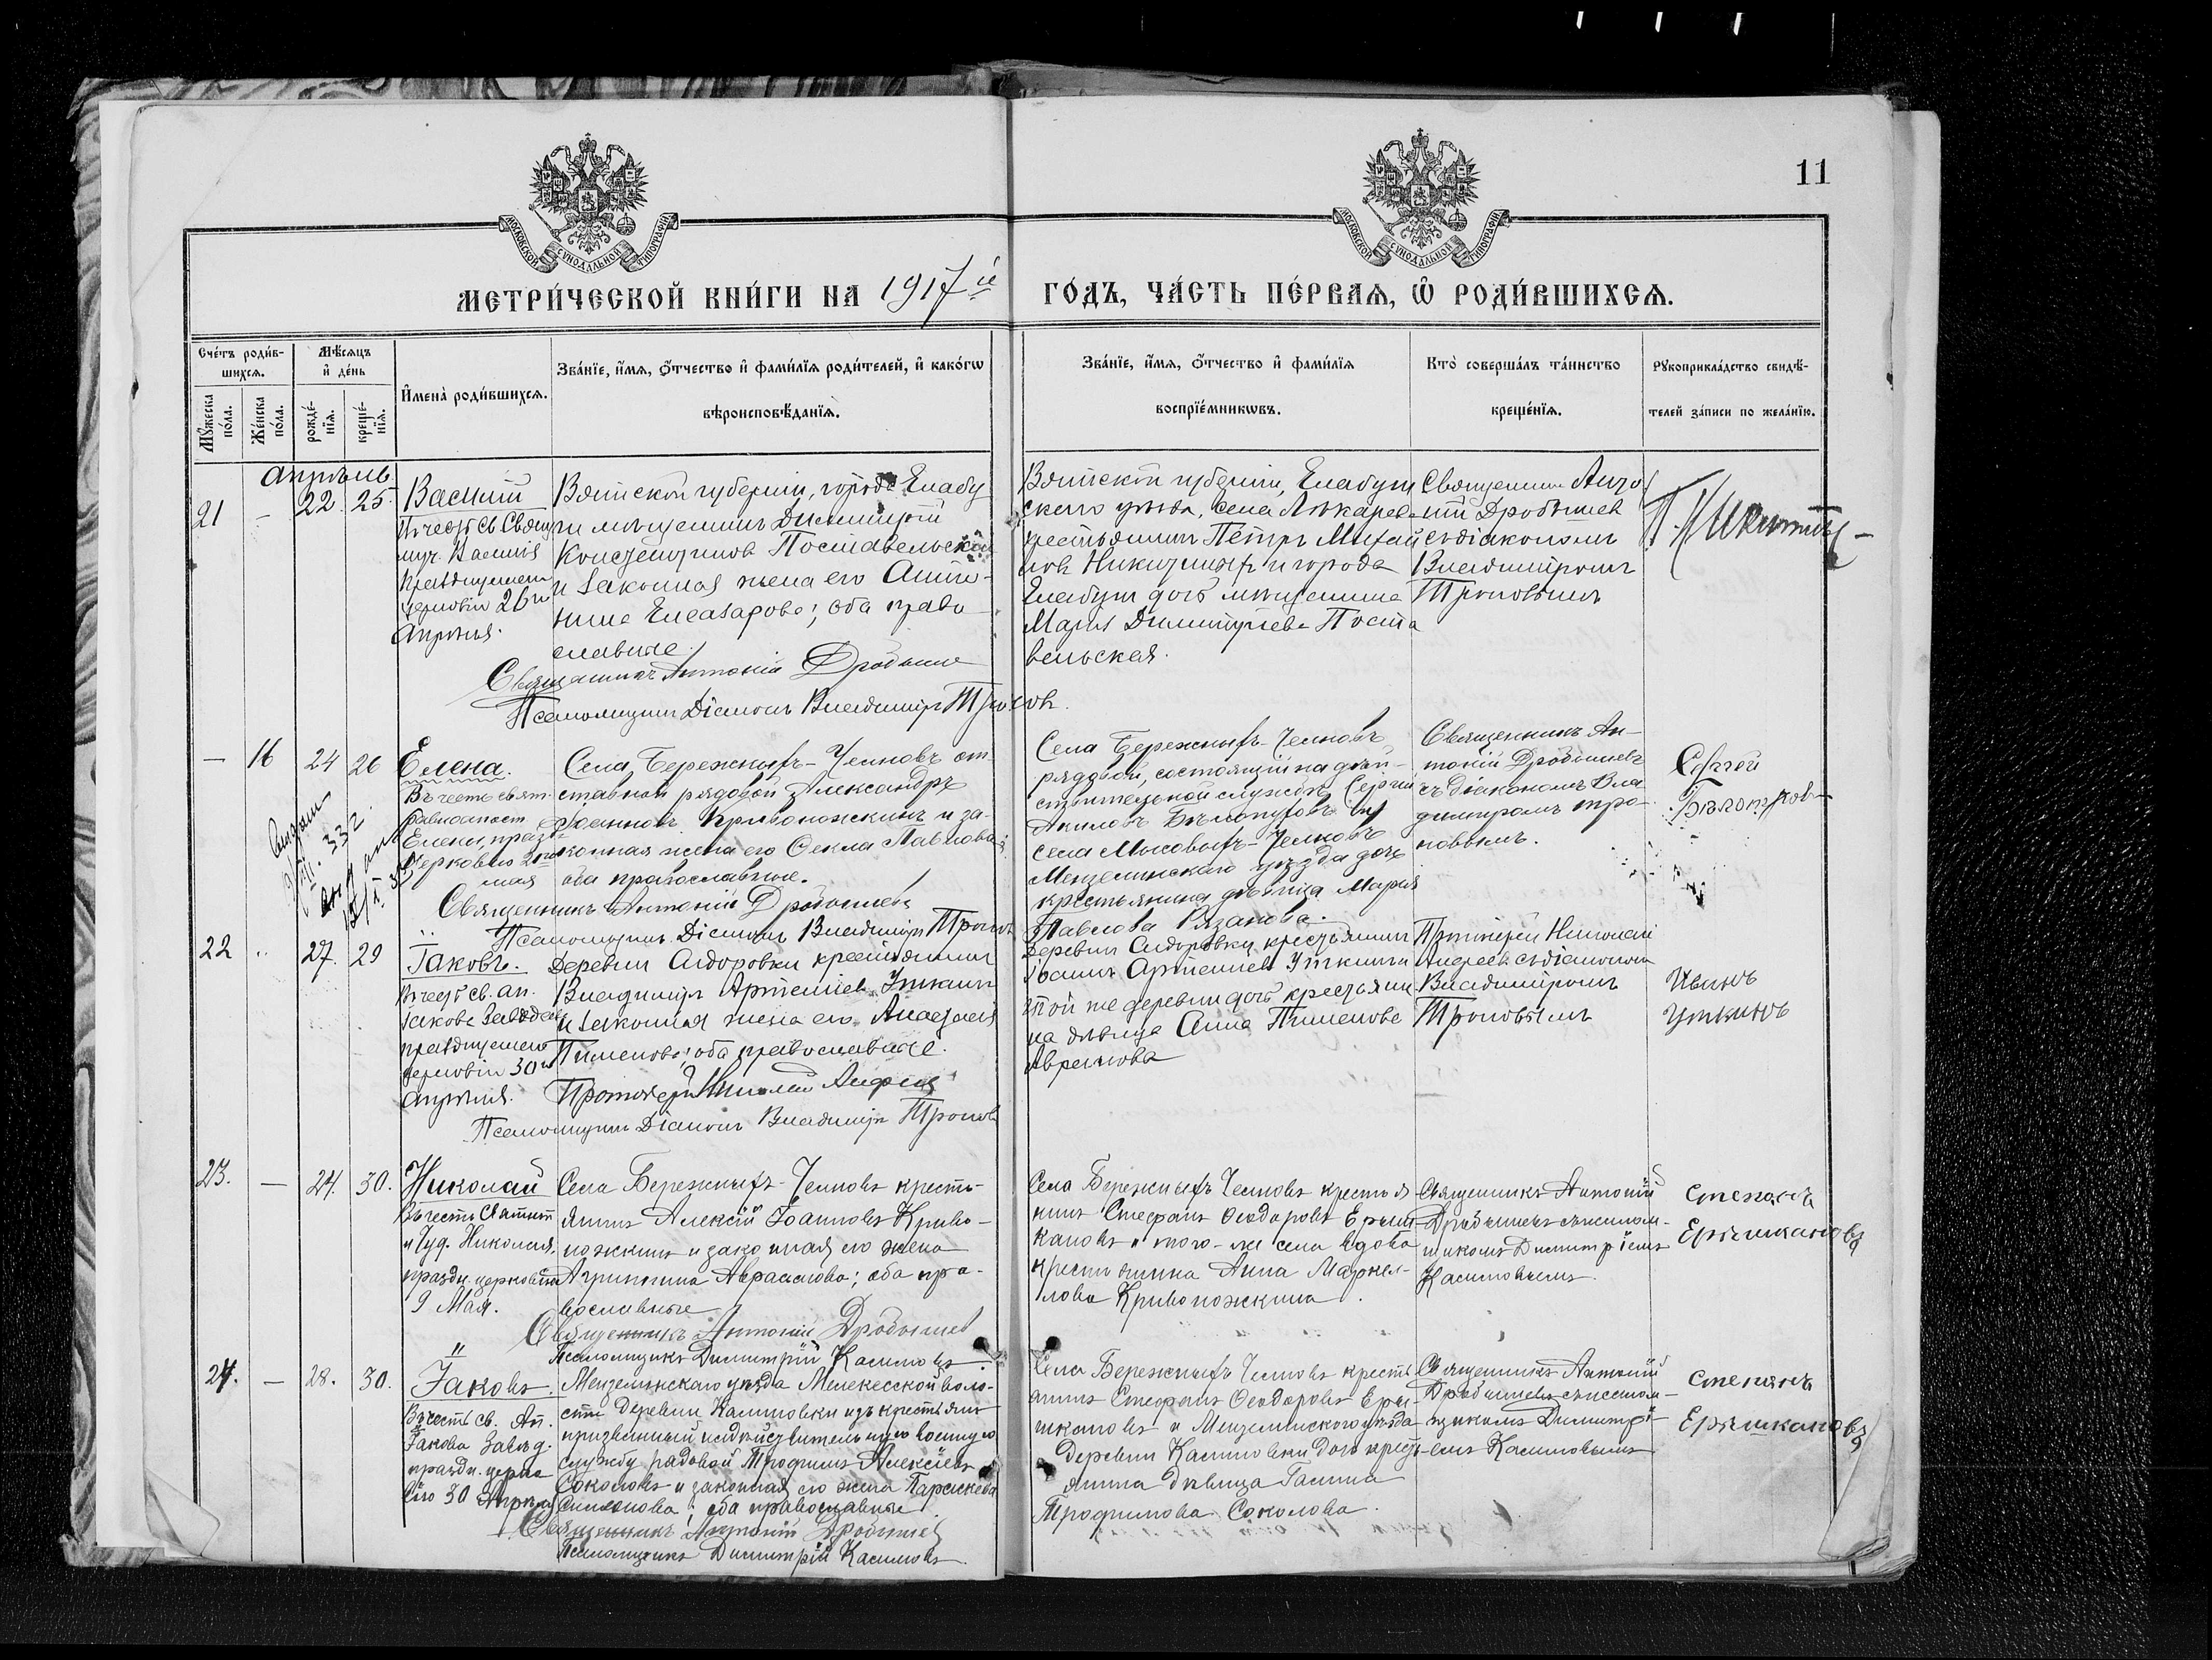 11
МОСКОВСКОЙ СѴНОДАЛЬНОЙ ТИПОГРАФІИ
МОСКОВСКОЙ СѴНОДАЛЬНОЙ ТИПОГРАФІИ
МЕТРИ́ЧЕСКОЙ КНИ́ГИ НА 1917й
ГО́ДЪ, ЧА́СТЬ ПЕ́РВАѦ, Ѡ҆ РОДИ́ВШИХСѦ.
Сче́тъ роди́в-
шихсѧ.
Мꙋ́жеска
по́ла.
Же́нска
по́ла.
Мѣ́сѧцъ
и҆ де́нь
рожде́-
нїѧ.
креще́-
нїѧ.
И҆мена̀ роди́вшихсѧ.
Зва́нїе, и҆́мѧ, ѻ҆́тчество и҆ фами́лїѧ роди́телей, и҆ како́гѡ
вѣроисповѣ́данїѧ.
Зва́нїе, и҆́мѧ, ѻ҆́тчество и҆ фами́лїѧ
воспрїе́мникѡвъ.
Кто̀ соверша́лъ та́инство
креще́нїѧ.
Рꙋкоприкла́дство свидѣ́-
телей за́писи по жела́нїю.
Апрѣль
21 - 22. 25.
Василій
Въ честь св. Свящ
муч. Василія
празднуемаго
церковію 26го
Апрѣля.
Вятской губерніи, города Елабу
ги мѣщанинъ Димитрій
Константиновъ Поставельскій
и законная жена его Анто-
нина Елеазарова; оба право
славные.
Священникъ Антоній Дробышев
Псаломщикъ Діаконъ Владиміръ Троновъ.
Вятской губерніи, Елабуж
скаго уѣзда, села Лекарева
крестьянинъ Петръ Михай
ловъ Никитинъ и города
Елабуги дочь мѣщанина
Марія Димитріева Поста
вельская.
Священник Анто
ній Дробышев
съ діакономъ
Владиміромъ
Троновымъ
П. Никитинъ
— 16 24 26
Елена.
Въ честь свят.
равноапост
Елены, празд.
Церковію 21го
мая
Села Бережныхъ-Челновъ от
ставной рядовой Александръ
Іоанновъ Кривоножкинъ и за-
конная жена его Ѳекла Павлова;
оба православные.
Священникъ Антоній Дробышевъ
Псаломщикъ Діаконъ Владиміръ Троновъ
Села Бережныхъ-Челновъ
рядовой, состоящій на дѣй-
ствительной службѣ Сергій
Акиловъ Бѣлотуровъ и
села Мысовыхъ-Челновъ
Мензелинскаго уѣзда дочь
крестьянина дѣвица Марія
Павлова Рязанова.
Священникъ Ан-
тоній Дробышевъ
съ діакономъ Вла
диміромъ Тро-
новымъ.
Сергѣй
22 „ 27. 29
Іаковъ.
Въ честь св. ап.
Іакова Заведеева
празднуемаго
церковію 30го
апрѣля.
Деревни Сидоровки крестьянинъ
Владиміръ Артеміевъ Уткинъ
и законная жена его Анастасія
Пименова; оба православные.
Протоіерей Николай Андреевъ
Псаломщикъ Діаконъ Владиміръ Троновъ
Деревни Сидоровки крестьянинъ
Іоаннъ Артеміевъ Уткинъ и
той же деревни дочь крестьяни
на дѣвица Анна Пименова
Аврамова
Протоіерей Николай
Андреевъ съ діакономъ
Владиміромъ
Троновымъ
Иванъ
Уткинъ
23. — 24. 30.
Николай
Въ честь Святит
и Чуд. Николая,
праздн. церковію
9 Мая.
Села Бережныхъ-Челновъ кресть-
янинъ Алексій Іоанновъ Криво-
ножкинъ и законная его жена
Агрипина Аврамова; оба пра-
вославные
Священникъ Антоній Дробышев
Псаломщикъ Димитрій Касимовъ.
Села Бережныхъ Челновъ крестья
нинъ Стефанъ Ѳеодоровъ Ерыш-
кановъ и того-же села вдова
крестьянина Анна Маркел-
лова Кривоножкина.
Священникъ Антоній
Дробышевъ съ псалом-
щикомъ Димитріемъ
Касимовымъ.
Степанъ
Ерышкановъ
24. — 28. 30.
Іаковъ.
Въ честь св. Ап.
Іакова Завед.
праздн. церко
вію 30 Апрѣля
Мензелинскаго уѣзда Мелекесской воло-
сти деревни Калиновки изъ крестьянъ
призванный на дѣйствительную военную
службу рядовой Трофимъ Алексіевъ
Соколовъ и законная его жена Параскева
Симеонова; оба православные.
Священникъ Антоній Дробышев
Псаломщикъ Димитрій Касимовъ.
Села Бережныхъ Челновъ кресть
янинъ Стефанъ Ѳеодоровъ Еры-
шкановъ и Мензелинскаго уѣзда
Деревни Калиновки дочь крест
янина дѣвица Галина
Трофимова Соколова.
Священникъ Антоній
Дробышевъ съ псалом-
щикомъ Димитрі-
емъ Касимовымъ
Степанъ
Ерышкановъ